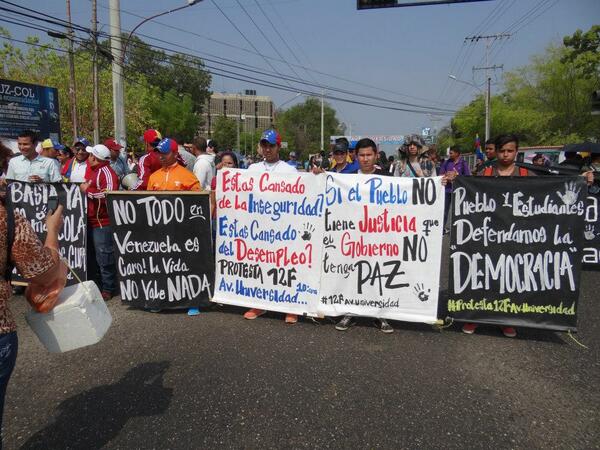 UZ-COL
BASTA YA
NO TODO en
Venezuela es
Caro! la Vida
No Vale NADA
Estas Cansado
de la Inseguridad!
Estas Cansado
del Desempleo?
PROTESTA 12F
Av. Universidad...
Si el Pueblo NO
tiene Justicia que
el Gobierno NO
tenga PAZ
#12F Av. Universidad
Pueblo y Estudiantes
Defendamos la
"DEMOCRACIA"
#Protesta 12F Av. Universidad